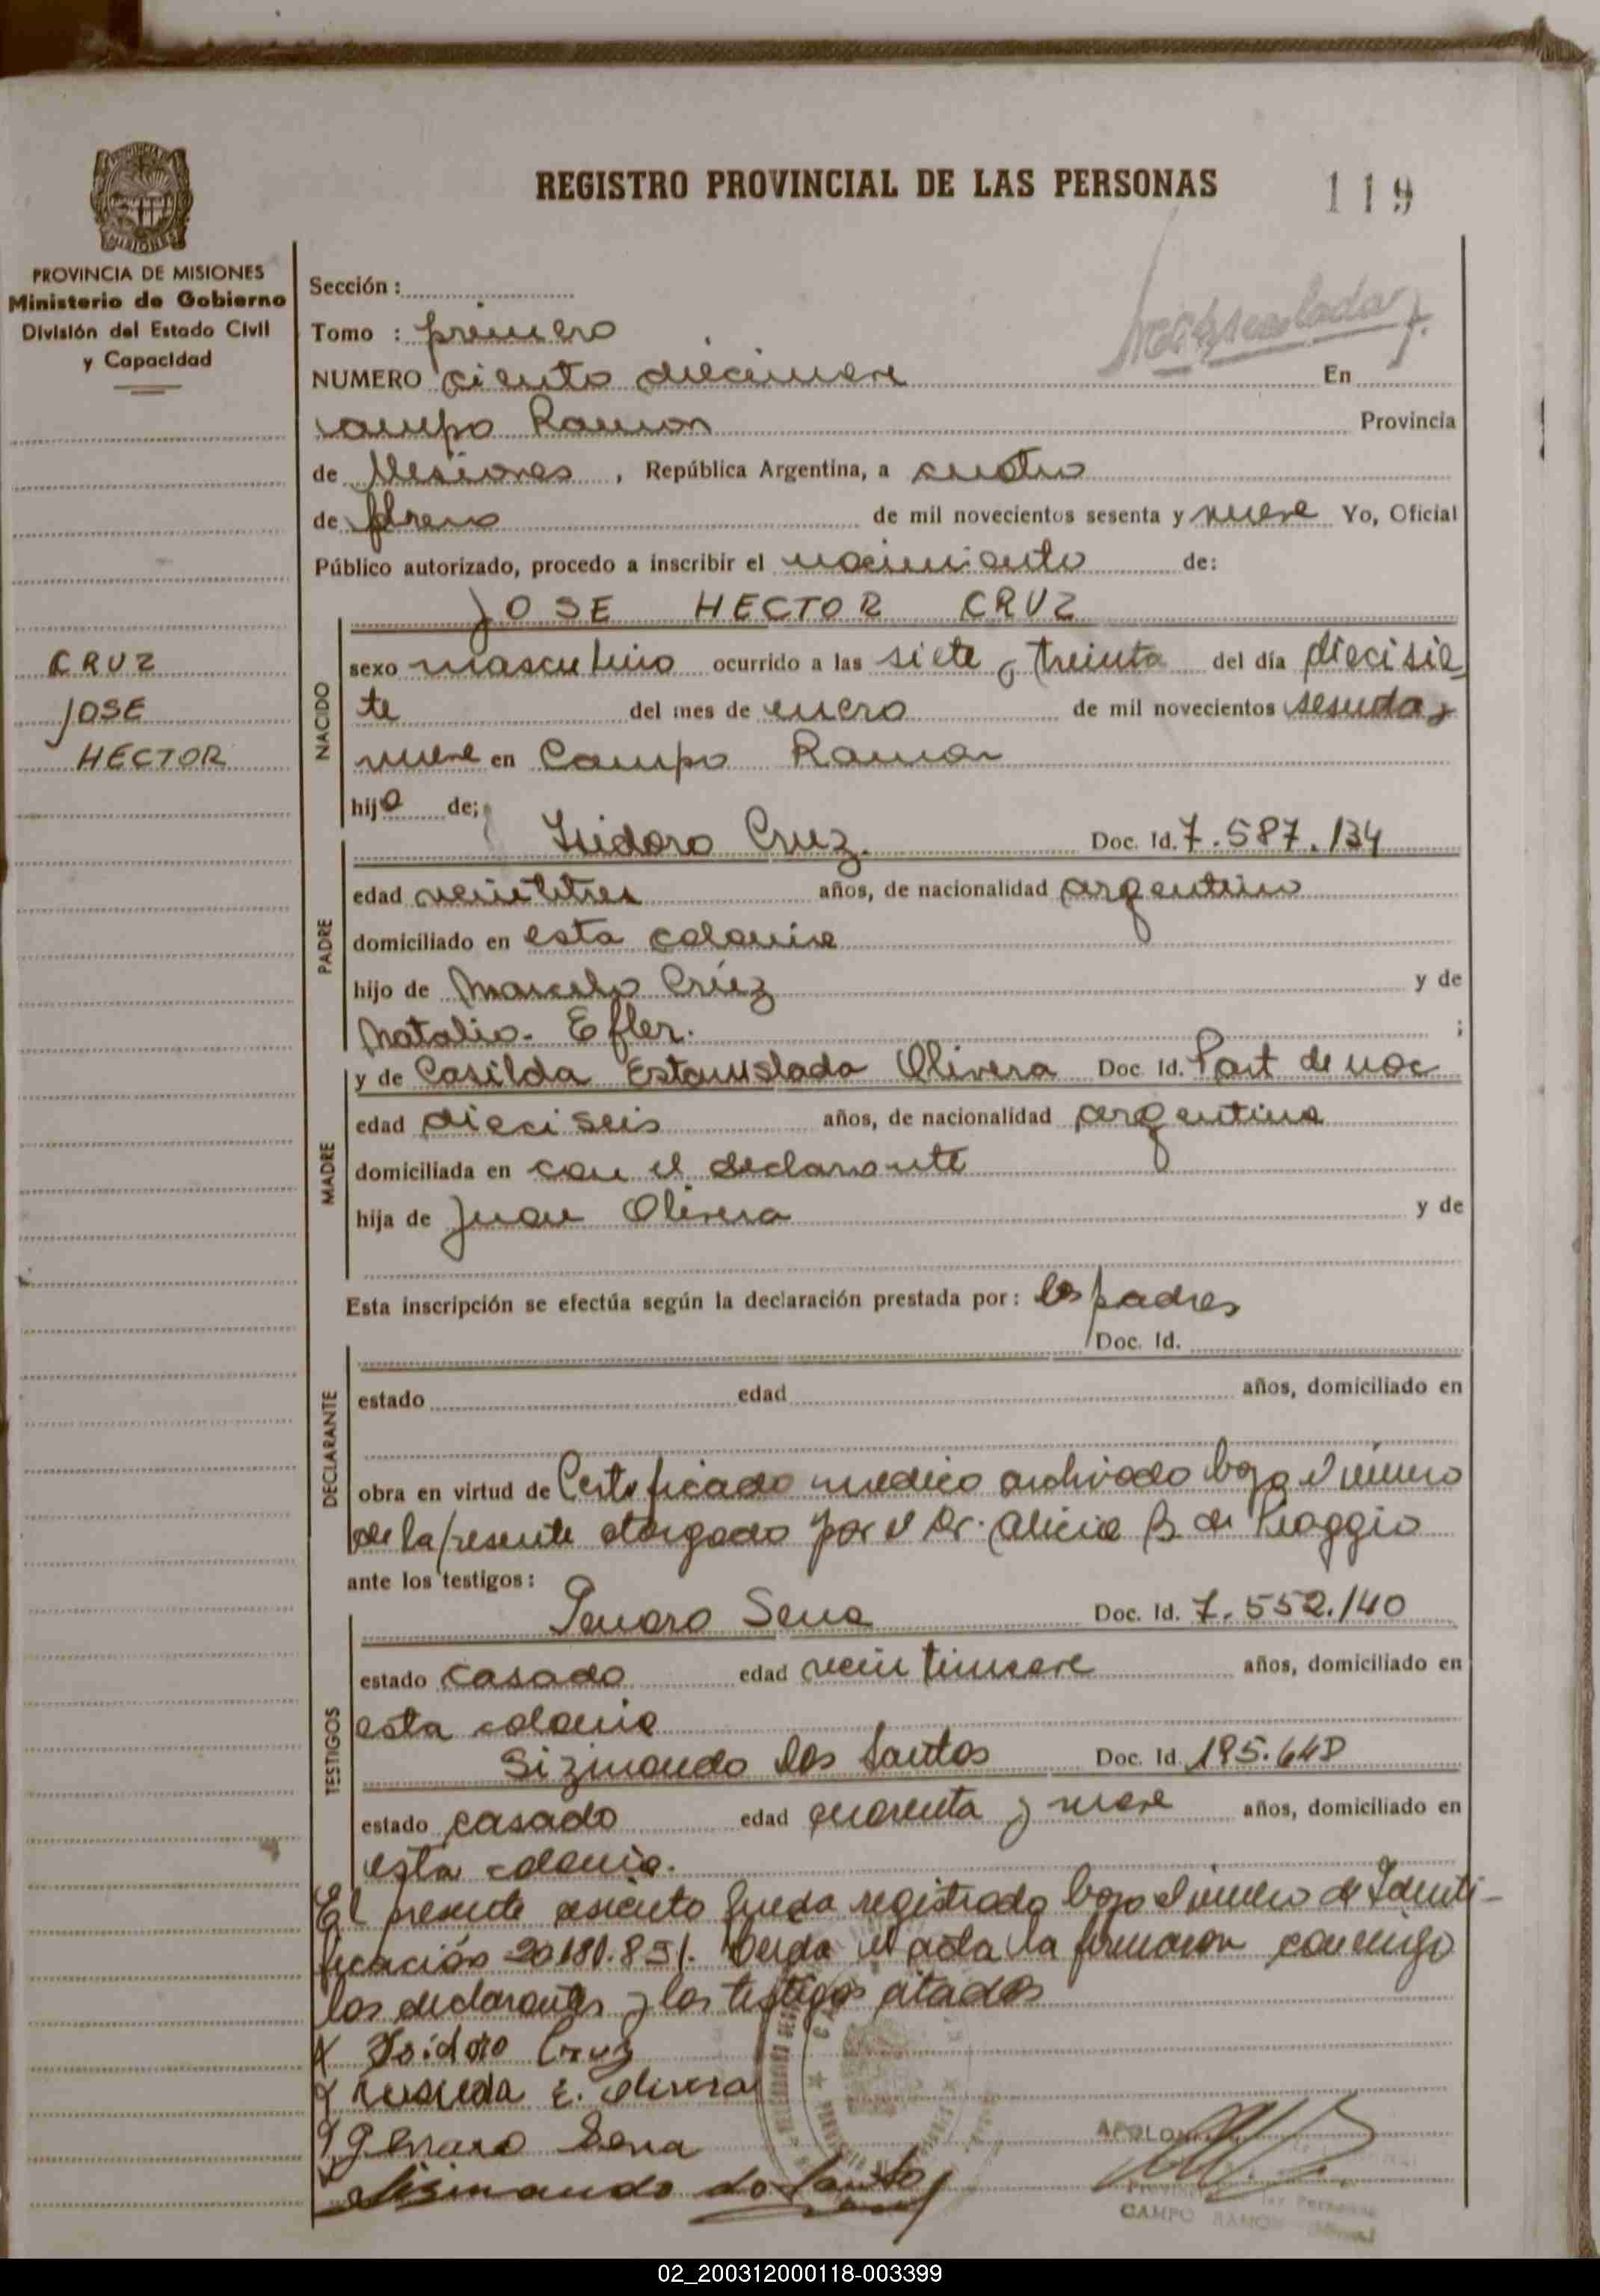 REGISTRO PROVINCIAL DE LAS PERSONAS
119
PROVINCIA DE MISIONES
PROVINCIA DE MISIONES
Ministerio de Gobierno
División del Estado Civil
y Capacidad
CRUZ
JOSE
HECTOR
Sección :
Tomo : primero
NUMERO ciento diecinueve En
Campo Ramon Provincia
de Misiones , República Argentina, a cuatro
de febrero de mil novecientos sesenta y nueve Yo, Oficial
Público autorizado, procedo a inscribir el nacimiento de:
JOSE HECTOR CRUZ
NACIDO
sexo masculino ocurrido a las siete y treinta del día diecisie
te del mes de enero de mil novecientos sesenta y
nueve en Campo Ramon
hijo de;
PADRE
Isidoro Cruz. Doc. Id. 7.587.134
edad veintitres años, de nacionalidad argentino
domiciliado en esta colonia
hijo de Marcelo Cruz y de
Natalia Efler. ;
MADRE
y de Casilda Estanislada Olivera Doc Id. Part de nac
edad dieciseis años, de nacionalidad argentina
domiciliada en con el declarante
hija de Juan Olivera y de
Esta inscripción se efectúa según la declaración prestada por: los padres
DECLARANTE
Doc. Id.
estado edad años, domiciliado en
obra en virtud de Certificado medico archivado bajo el numero
de la presente otorgado por el Dr. Alicia B. de Piaggio
ante los testigos:
TESTIGOS
Genaro Sena Doc. Id. 7.552.140
estado casado edad veintinueve años, domiciliado en
esta colonia
Sizmando Dos Santos Doc. Id. 195.648
estado casado edad cuarenta y nueve años, domiciliado en
esta colonia.
El presente asiento queda registrado bajo el numero de Identi-
ficación 20.180.851. Leida el acta la firmaron conmigo
los declarantes y los testigos citados
Isidoro Cruz
E. Olivera
Genaro Sena
Sismando do Santo
APOLON
CAMPO RAMON
02_200312000118-003399